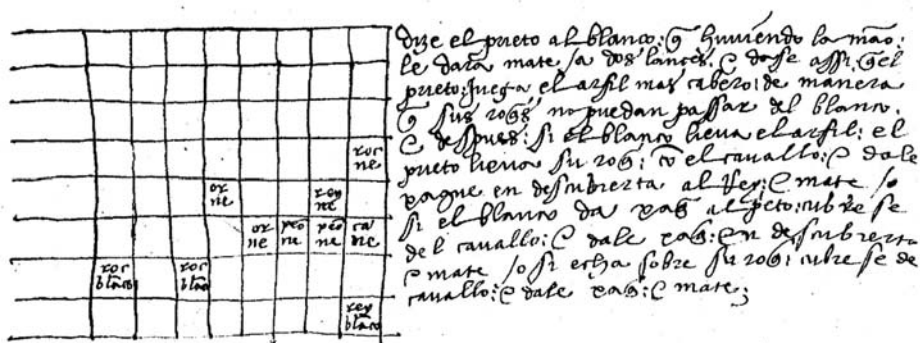 roc
ne
or
ne
rey
ne
or
ne
peo
ne
peo
ne
ca
ne
roc
blāco
roc
blāo
rey
blāco
dize el prieto al blanco: q̄ huviendo la māo:
le dara mate /a dos lances. e dase assi. q̄ el
prieto: juega el arfil mas cabero: de manera
q̄ sus no puedan passar del blanco.
e despues: si el blanco lieva el arfil: el
prieto lieva su : cō el cavallo: e dale
xaque en descubierta al Rey: e mate /o
si el blanco da al : cubrese
del cavallo: e dale : en descubierta
e mate /o si echa sobre su : cubrese de
cavallo: e dale : e mate: